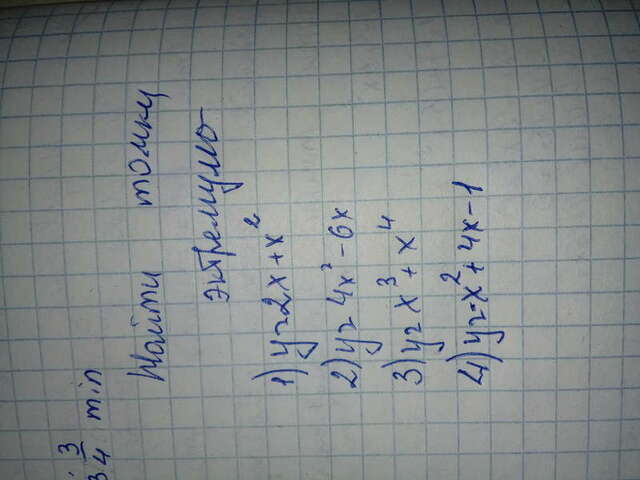 3/4 min
Найти точку
эктремумо
1) y=2x+x²
2) y=4x²-6x
3) y=x³+x⁴
4) y=-x²+4x-1